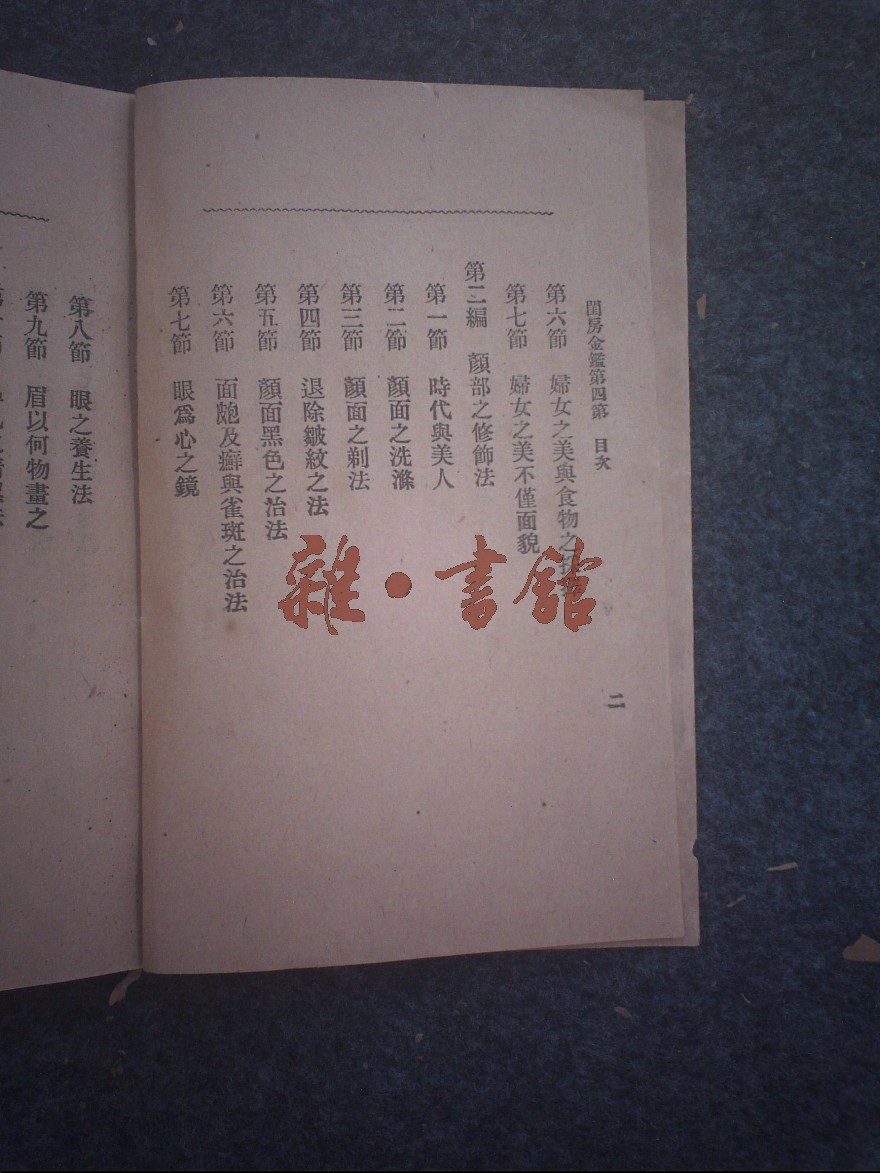 閨房金鑑第四第 目次
二
第六節 婦女之美與食物之
第七節 婦女之美不僅面貌
第二編 顏部之修飾法
第一節 時代與美人
第二節 顏面之洗滌
第三節 顏面之剃法
第四節 退除皺紋之法
第五節 顏面黑色之治法
第六節 面皰及癬與雀斑之治法
第七節 眼爲心之鏡
第八節 眼之養生法
第九節 眉以何物畫之
雜·書館